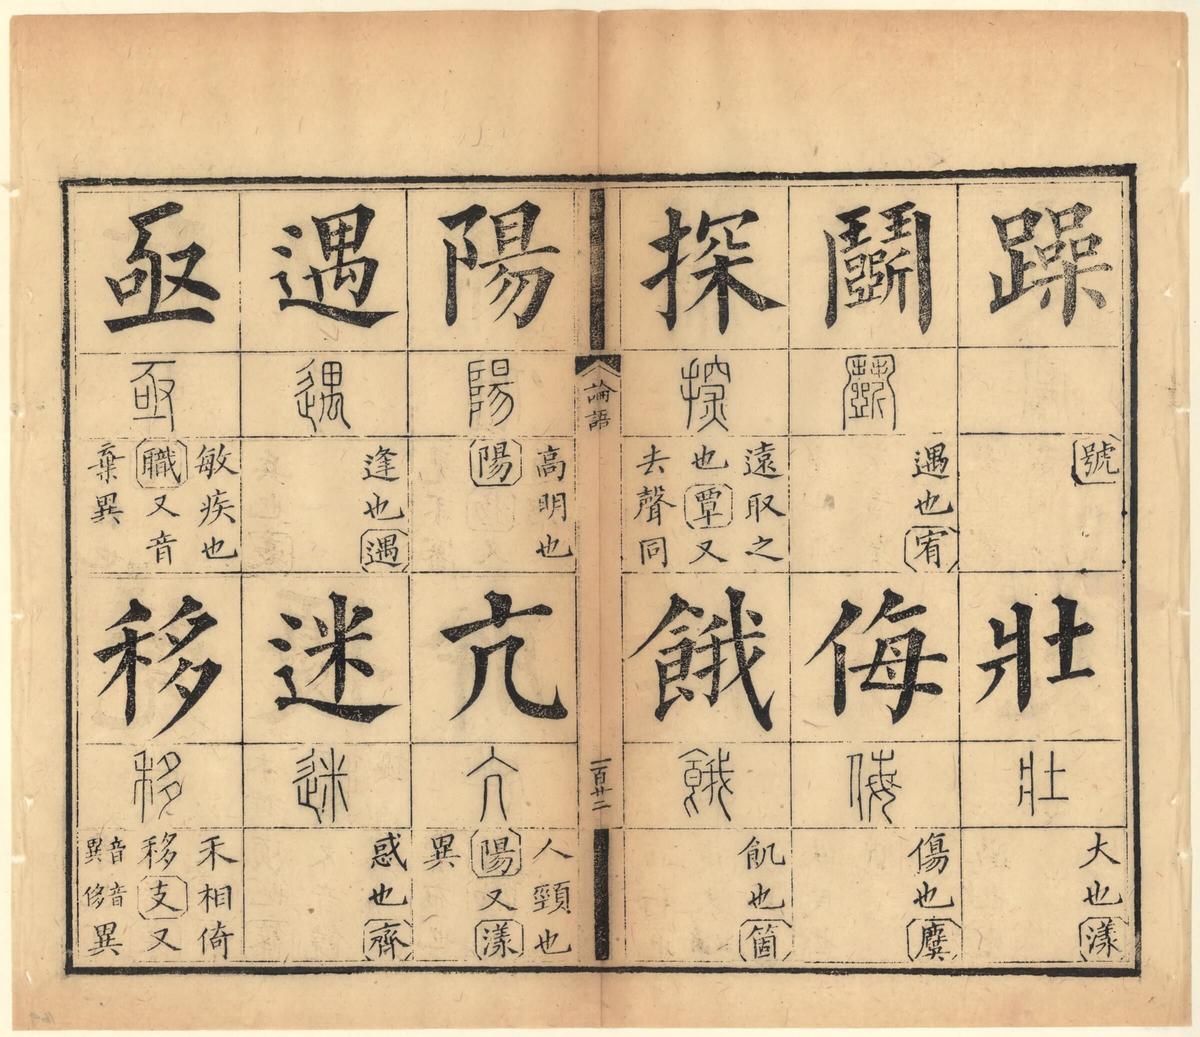 躁
號
壯
壯
大也漾
鬭
鬭
遇也宥
侮
侮
傷也麌
探
探
遠取之
也覃又
去聲同
餓
餓
飢也箇
論語
一百廿二
陽
陽
高明也
陽
亢
亢
人頸也
陽又漾
異
遇
遇
逢也遇
迷
迷
惑也齊
亟
亟
敏疾也
職又音
棄異
移
移
禾相倚
移支又
音異音侈異